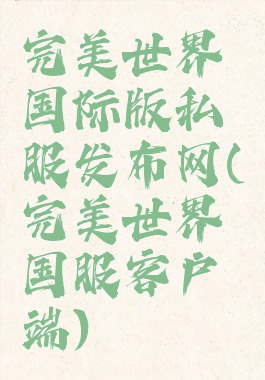 完美世界
国际版私
服发布网(
完美世界
国服客户
端)